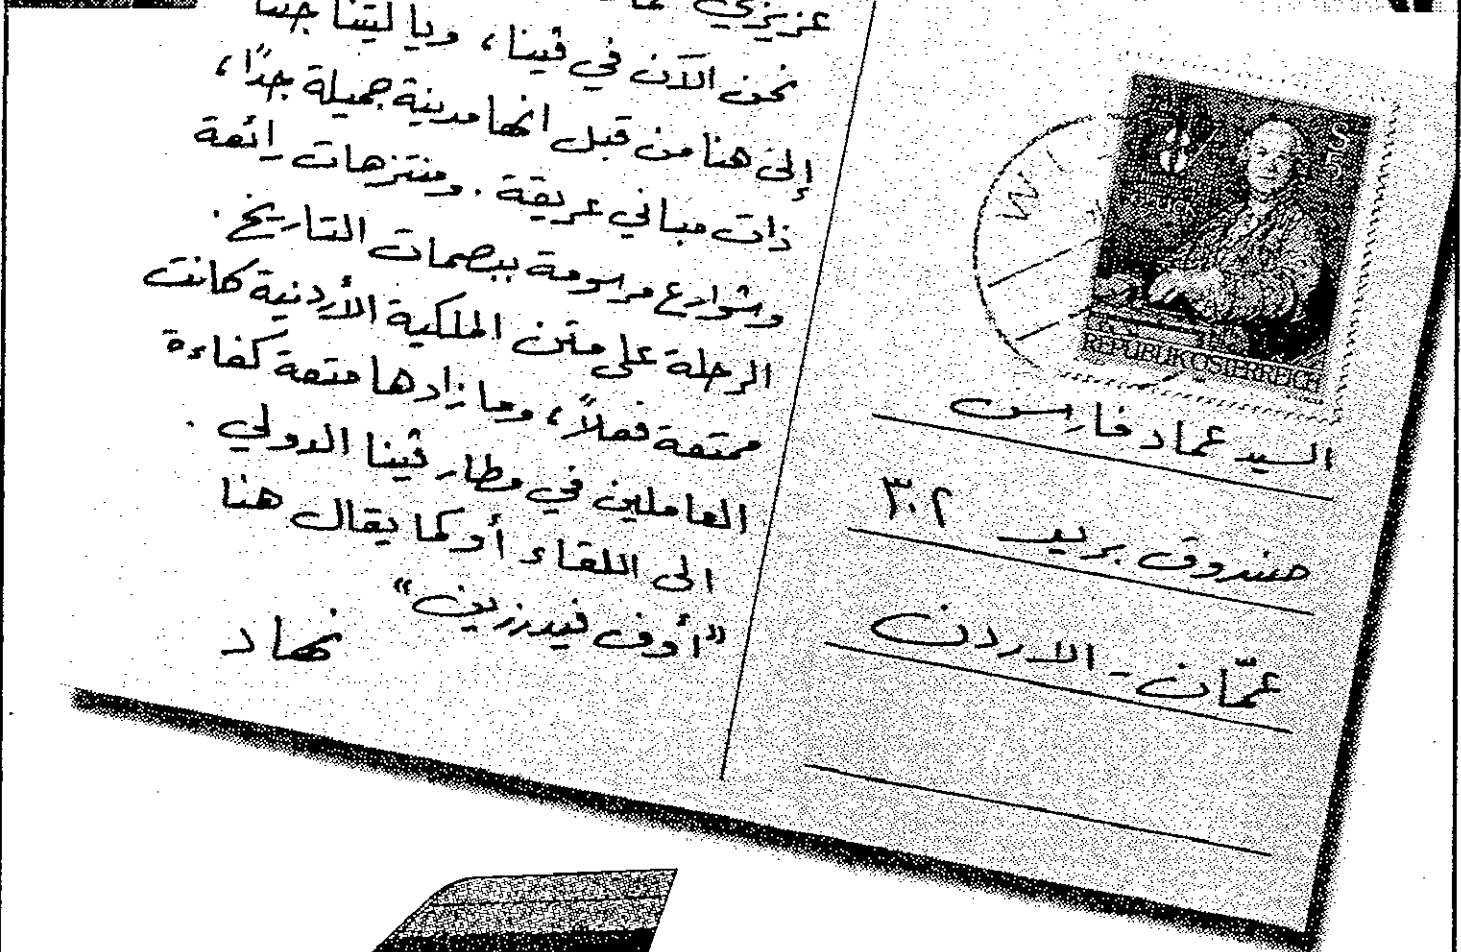 عزيزي
نحن الآن في ڤينا، ويا ليتنا جئنا
إلى هنا من قبل انها مدينة جميلة جدًا،
ذات مباني عريقة. ومنتزهات رائعة
وشوارع مرسومة ببصمات التاريخ.
الرحلة على متن الملكية الأردنية كانت
ممتعة فعلاً، وما زادها متعة كفاءة
العاملين في مطار ڤينا الدولي.
الى اللقاء أو كما يقال هنا
"أوف فيدرزين"
نهاد
S 5
WI
GLUCK
REPUBLIK ÖSTERREICH
السيد عماد فارس
صندوق بريد ٣٠٢
عمّان - الاردن